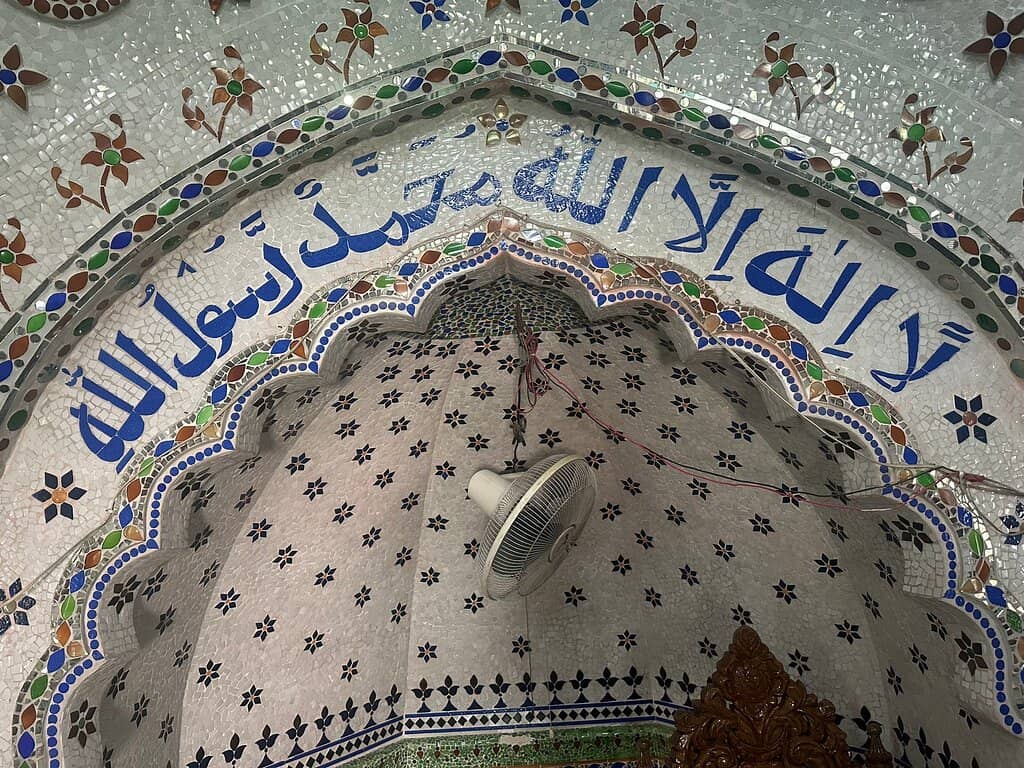 لَا إِلٰهَ إِلَّا اللّٰهُ مُحَمَّدٌ رَّسُولُ اللّٰهِ